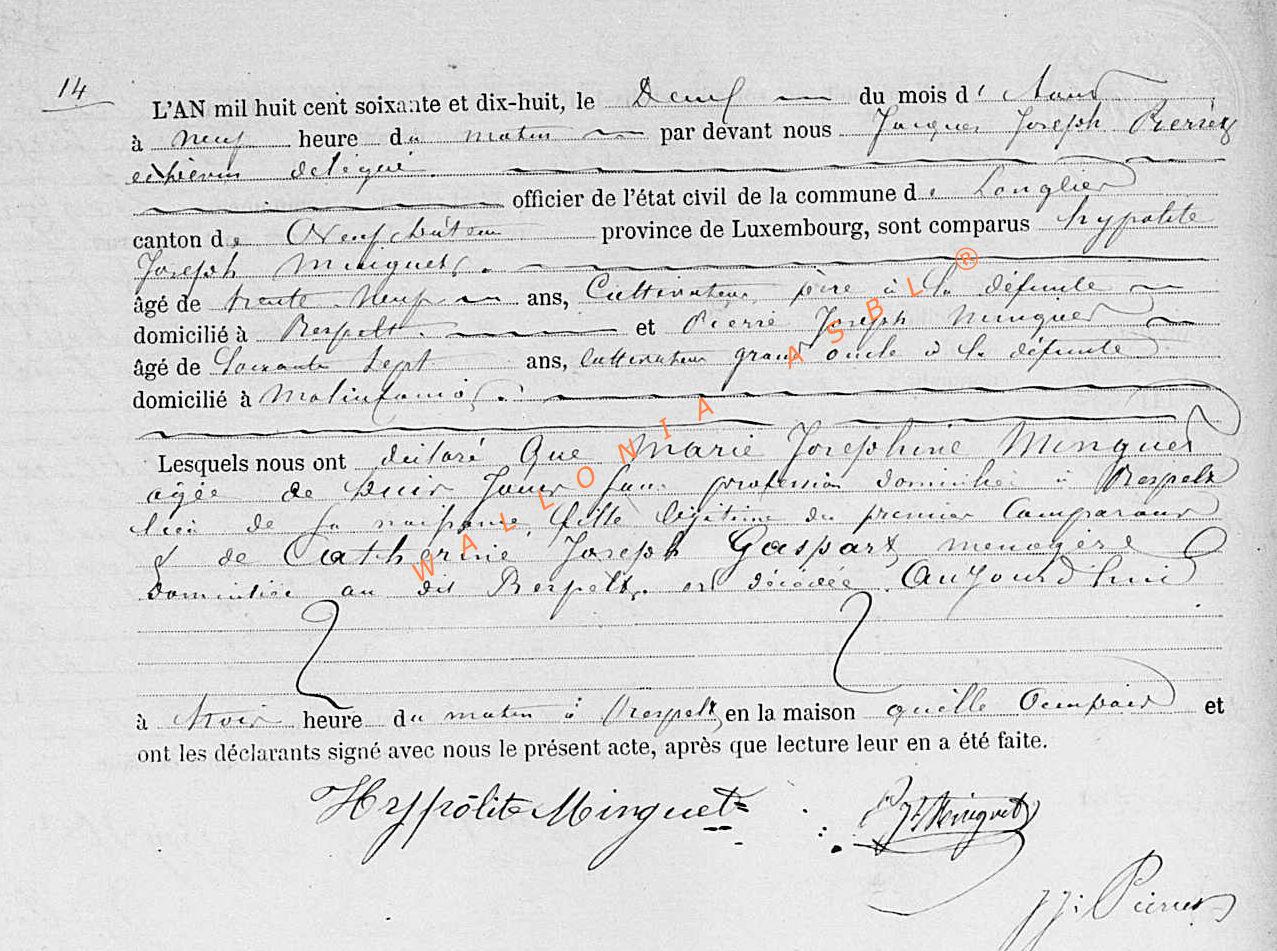 14
L'AN mil huit cent soixante et dix-huit, le Deux du mois d' Aout
à neuf heure du matin par devant nous Jacques Joseph Pierret
echevin delégué
officier de l'état civil de la commune de Longlier
canton de Neufchâteau province de Luxembourg, sont comparus hypolite
Joseph Minguet.
âgé de trente neuf ans, Cultivateur père à la défunte
domicilié à Respelt et Pierre Joseph Minguet
âgé de Soixante Sept ans, Cultivateur grand oncle à la défunte
domicilié à Molinfaing.
Lesquels nous ont déclaré Que Marie Josephine Minguet
agée de Jours sans profession domiciliée à Respelt
lieu de sa naissance, fille légitime du premier Comparant
& de Catherine Joseph Gaspart menagère
domiciliée au dit Respelt. est décédée Aujourd'hui
à trois heure du matin à Respelt, en la maison quelle Occupait et
ont les déclarants signé avec nous le présent acte, après que lecture leur en a été faite.
Hyppolite Minguet
PJ Minguet
JJ: Pierret
WALLONIA ASBL ®